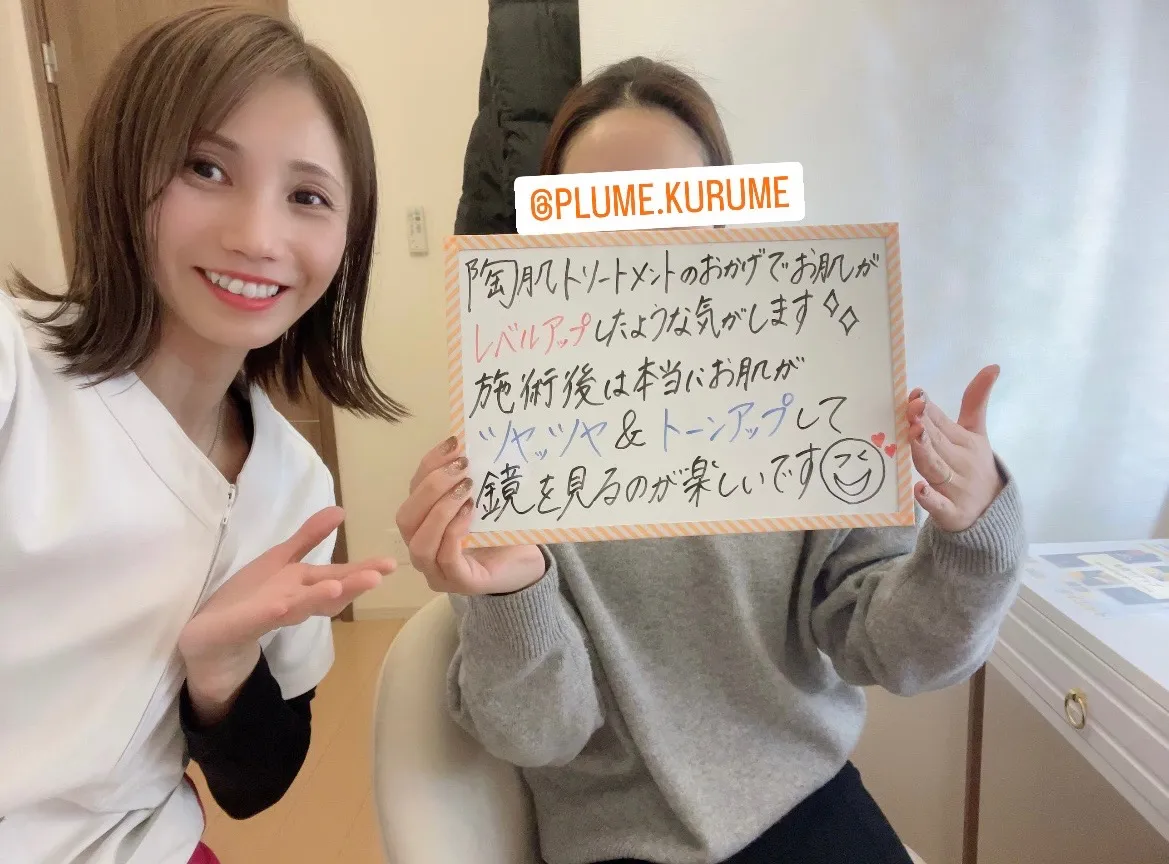 @PLUME.KURUME
陶肌トリートメントのおかげでお肌が
レベルアップしたような気がします
施術後は本当にお肌が
ツヤッツヤ & トーンアップして
鏡を見るのが楽しいです